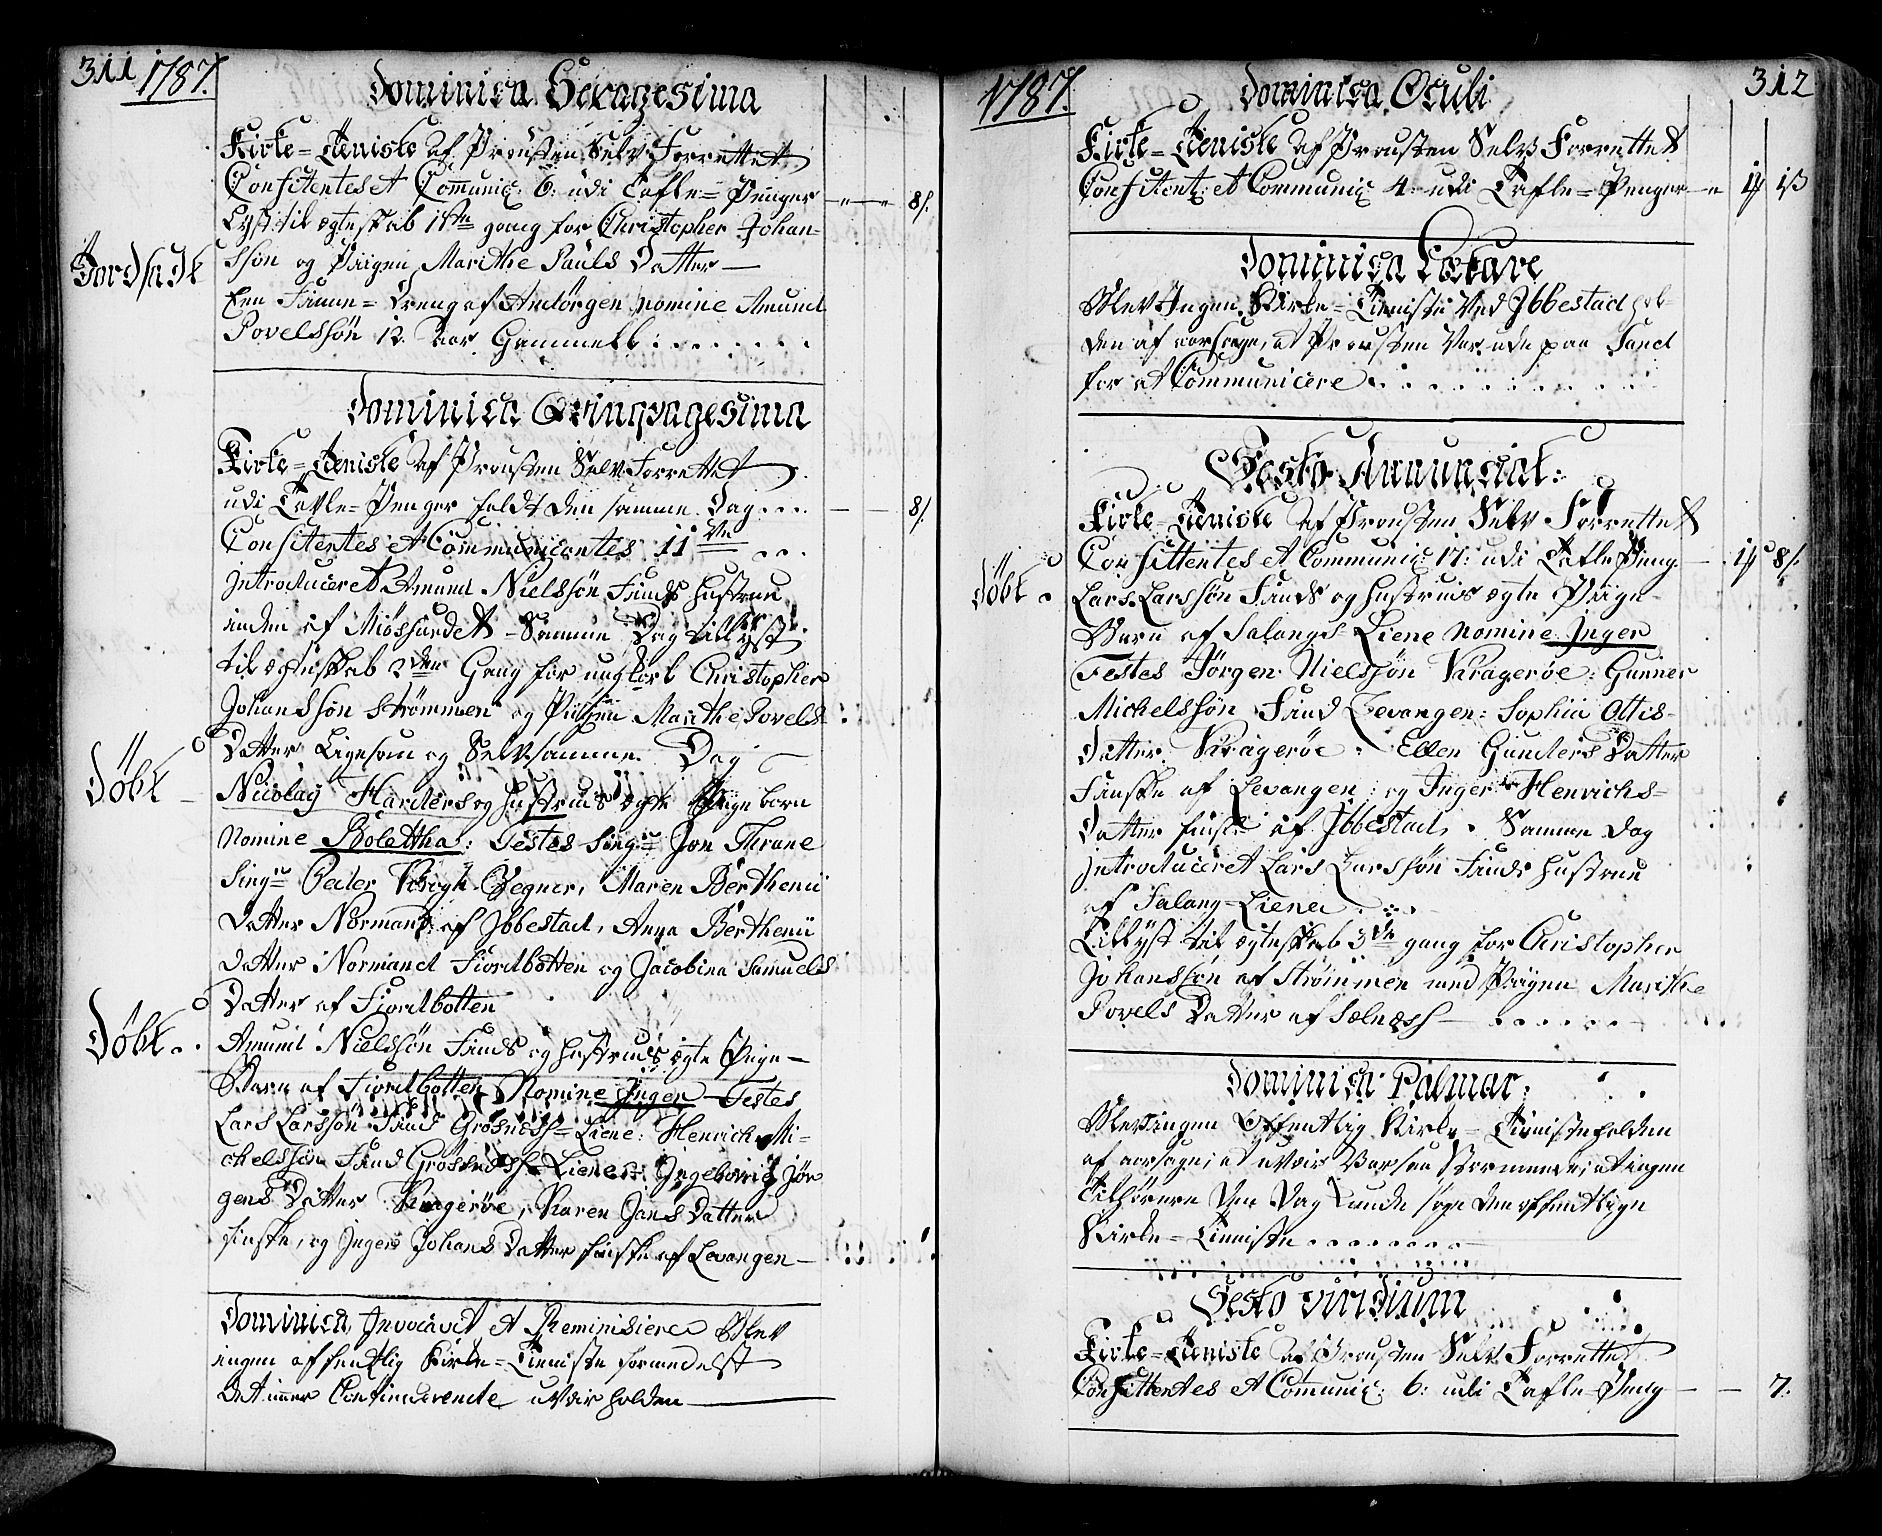 311 1787.
Dominica Sexagesima
Kirke=Tieniste af Prousten Selv Forrettet
Confitentes et Communic: 6: udi Tafle=Penger 8/.
Lyst til ægteskab 1ste gang for Christopher Johan-
Jordsadt
ssön og Piigen Marithe Pauls Datter
Een Finne=Dreng af nomine Amund
Povelssön 12 Aar Gammell
Dominica Qvinqvagesima
Kirke=Tieniste af Prousten Selv Forrettet
udi Tavle=Penger faldt den samme Dag 8/.
Confitentes et Communicantes 11ve
Introduceret Amund Nielssön Finds Hustrue
inden af Miössundet Samme Dag tillyst
til ægteskab 2den Gang for ungkarl Christopher
Johanssön Strömmen og Piigen Marithe Povels
Datter Ligesom og Selvsamme Dag
Döbt
Nicolay Harders og Hustrues ægte Piige born
Nomine Bolettha: Testes Singr Jon Thrane
Singr Peiter Krogh Wegner, Maren Berthenii
Datter Normand af Ibbestad, Anna Berthenii
Datter Normand Fiordbotten og Jacobina Samuels
Datter af Fiordbotten
Döbt
Amund Nielssön Finds og Hustrues ægte Piige-
Barn af Fiordbotten Nomine Inger Testes
Lars Larssön Find Grosness=Liene: Henrich Mi-
chelssön Find Grösness=Liene: Ingeborrig Jör
gens Datter Krageröe, Karen Jans Datter
finske, og Inger Johans Datter finske af Levangen
Dominica Invocavit et Reminisiere Blev
ingen offentlig Kirke=Tieniste formedelst
det immer Continuerende uveir holden
1787. 312
Dominica Oculi
Kirke=Tieniste af Prousten Selv Forrettet
Confitent: et Communic: 4: udi Tafle=Penger
Dominica Lætare
Blev Ingen Kirke=Tieniste Ved Ibbestad hol-
den af aarsage, at Prousten Var ude paa Sand
for at Communicere
Festo Annunciat:
Kirke=Tieniste af Prousten Selv Forrettet
Confittentes et Communic: 17: udi Tafle Peng 8/.
Döbt
Lars Larssön Finds og Hustrues ægte Piige-
Barn af Salangs Liene Nomine Inger
Testes Jörgen Nielssön Kragerøe: Gunner
Michelssön Find Levangen: Sophia Ottis-
Datter Kragerøe: Ellen Gunders Datter
Finske af Levangen: og Inger Henrichs=
Datter finske af Ibbestad. Samme Dag
Introduceret Lars Larssön Finds Hustrue
af Salang=Liene
Tillyst til ægteskab 3die gang for Christopher
Johanssön af Strömmen med Piigen Marithe
Povels Datter af Selness
Dominica Palmar:
Blev ingen Offentlig Kirke=Tieniste holden
af aarsage; at uveir Var saa Stormende, at ingen
Tilhörere Den Dag kunde söge den offentlige
Kirke=Tieniste
Festo viridium
Kirke=Tieniste af Prousten Selv Forrettet
Confittentes et Communic: 6: udi Tafle Peng 7.